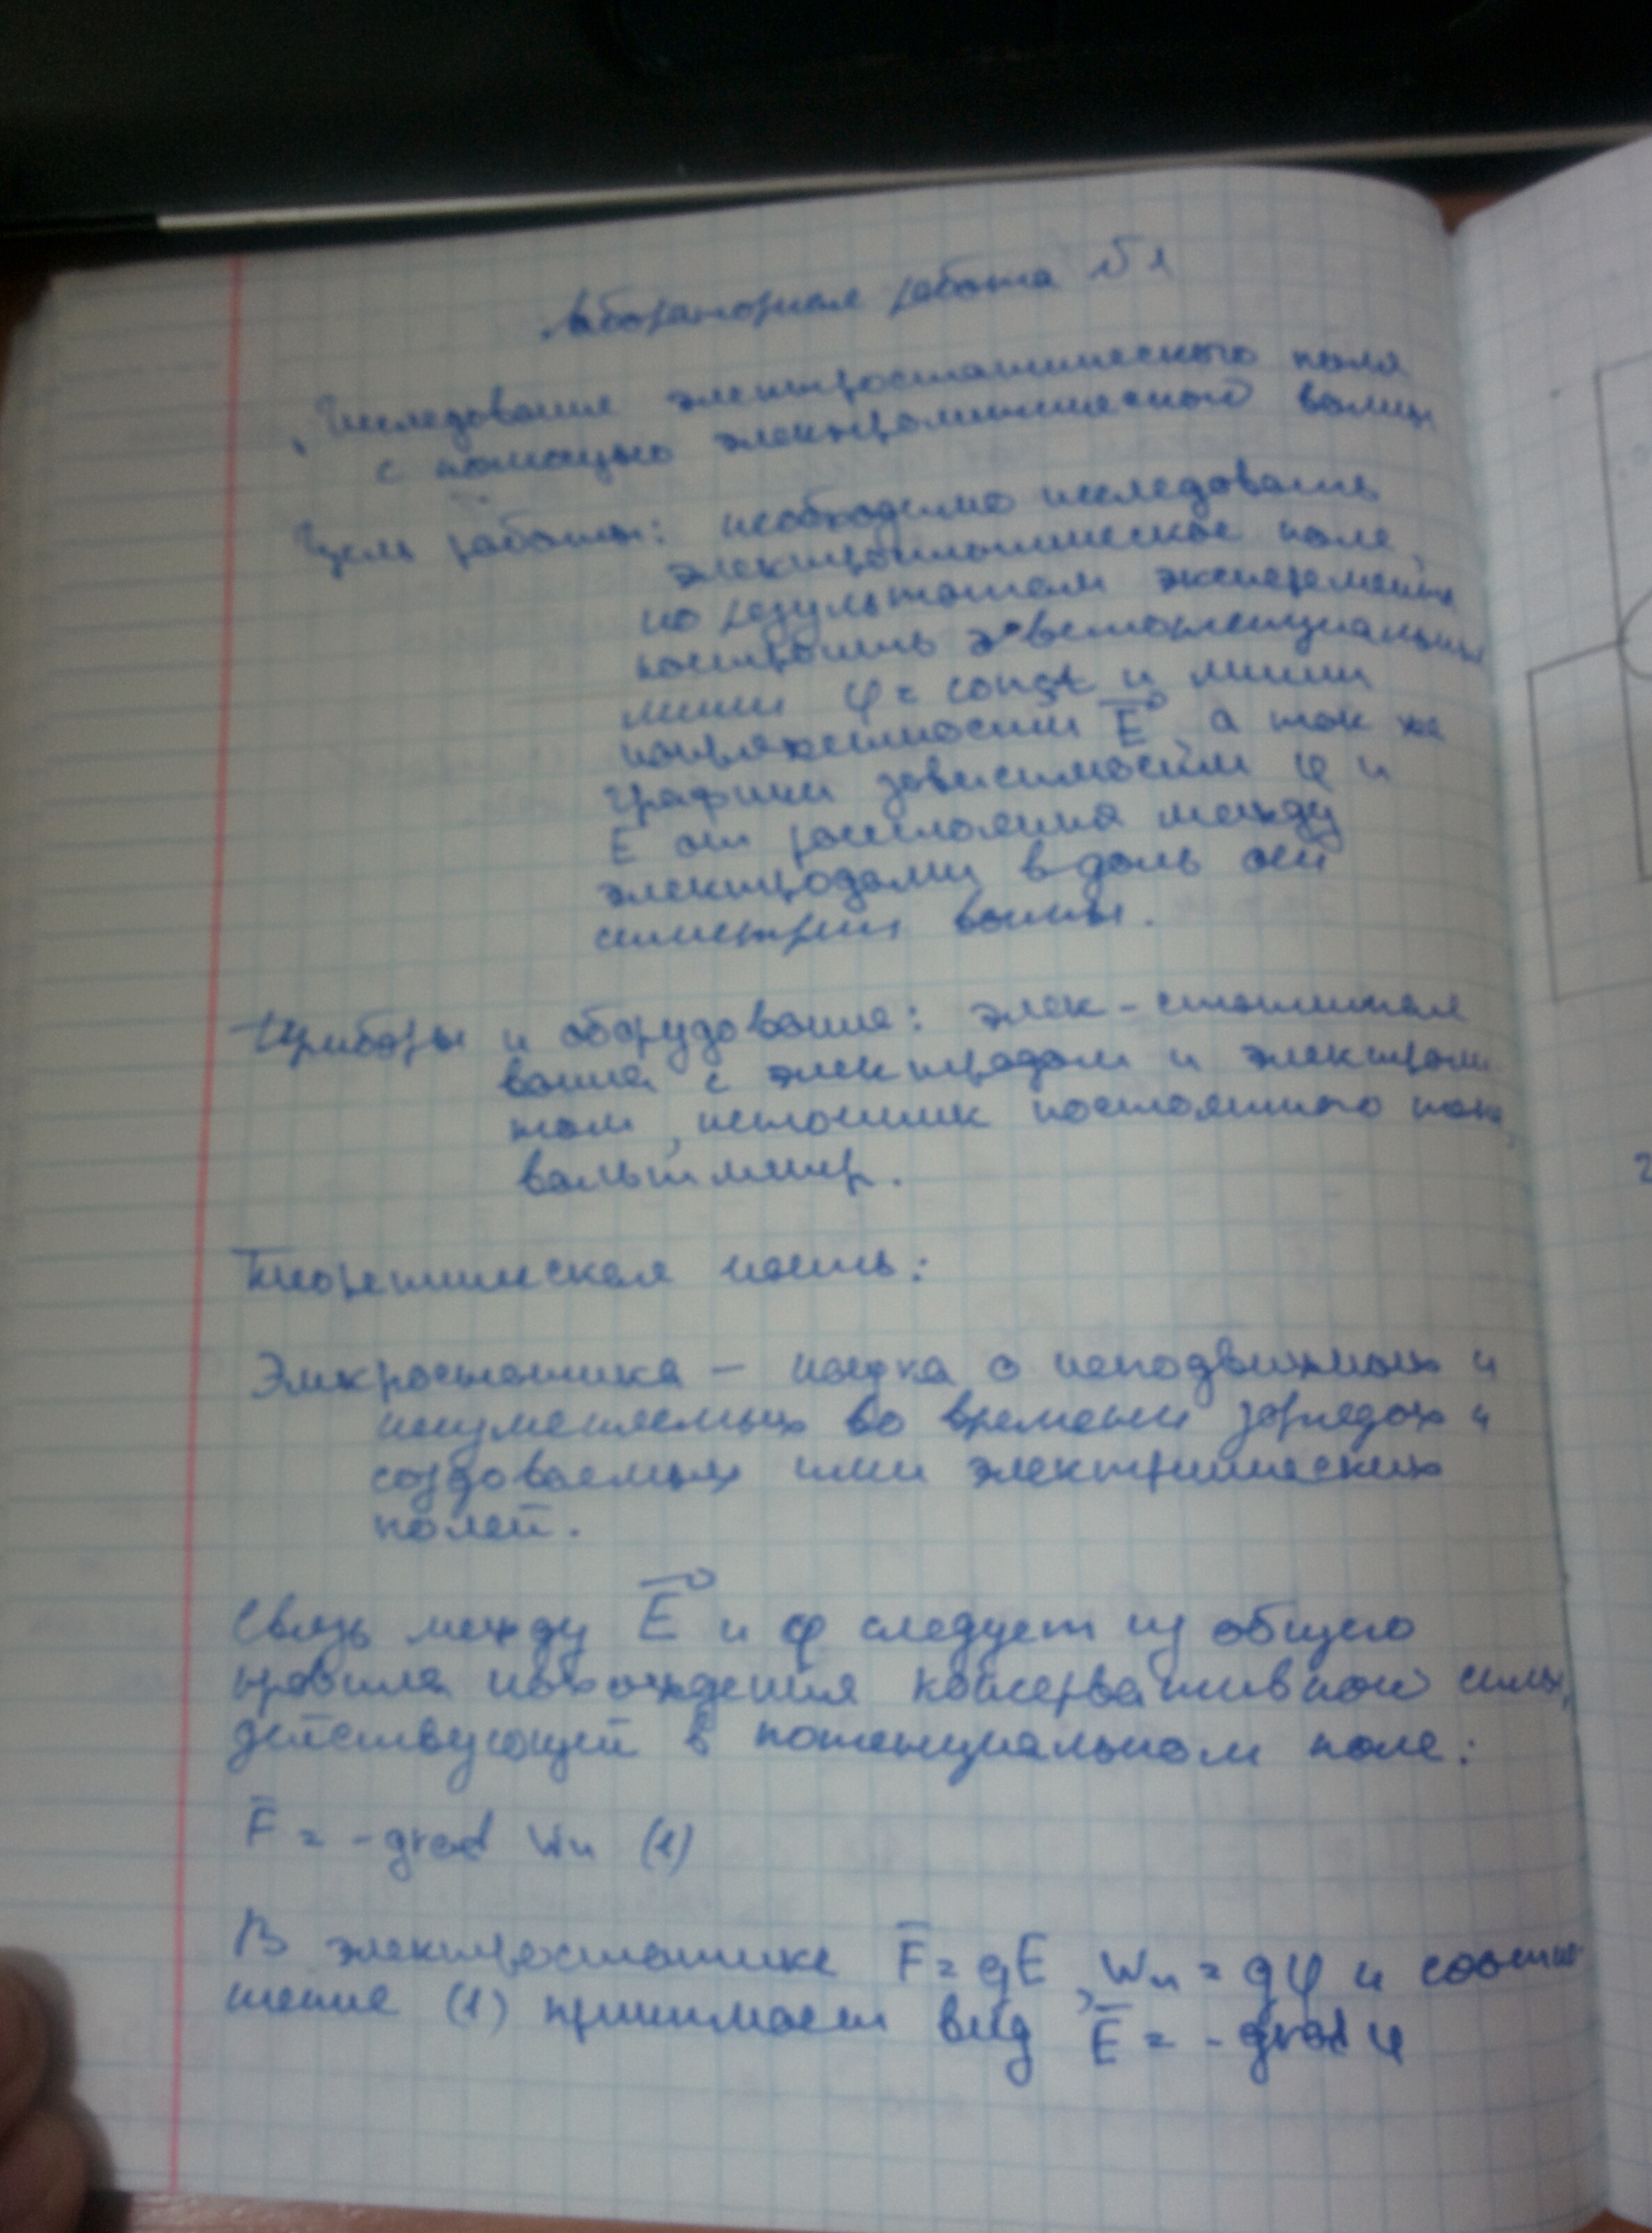 Лабораторная работа №1
"Исследование электростатического поля
с помощью электролитической ванны
Цель работы: необходимо исследовать
электростатическое поле,
по результатам эксперемента
построить эквипотенциальные
линии φ = const и линии
напряженности E, а так же
графики зависимости φ и
E от расстояния между
электродами вдоль оси
симетрии ванны.
Приборы и оборудование: элек-
ванна с электродами и электроли-
том, источник постоянного тока,
вольтметр.
Теоретическая часть:
Элекростатика – наука о неподвижных и
неизменяемых во времени зарядах и
создаваемых ими электрических
полей.
Связь между E и φ следует из общего
правила нахождения консервативной силы,
действующей в потенциальном поле:
F̄ = -grad Wп (1)
В электростатике F̄ = qE, Wп = qφ и соотно-
шение (1) принимает вид Ē = -grad φ
2